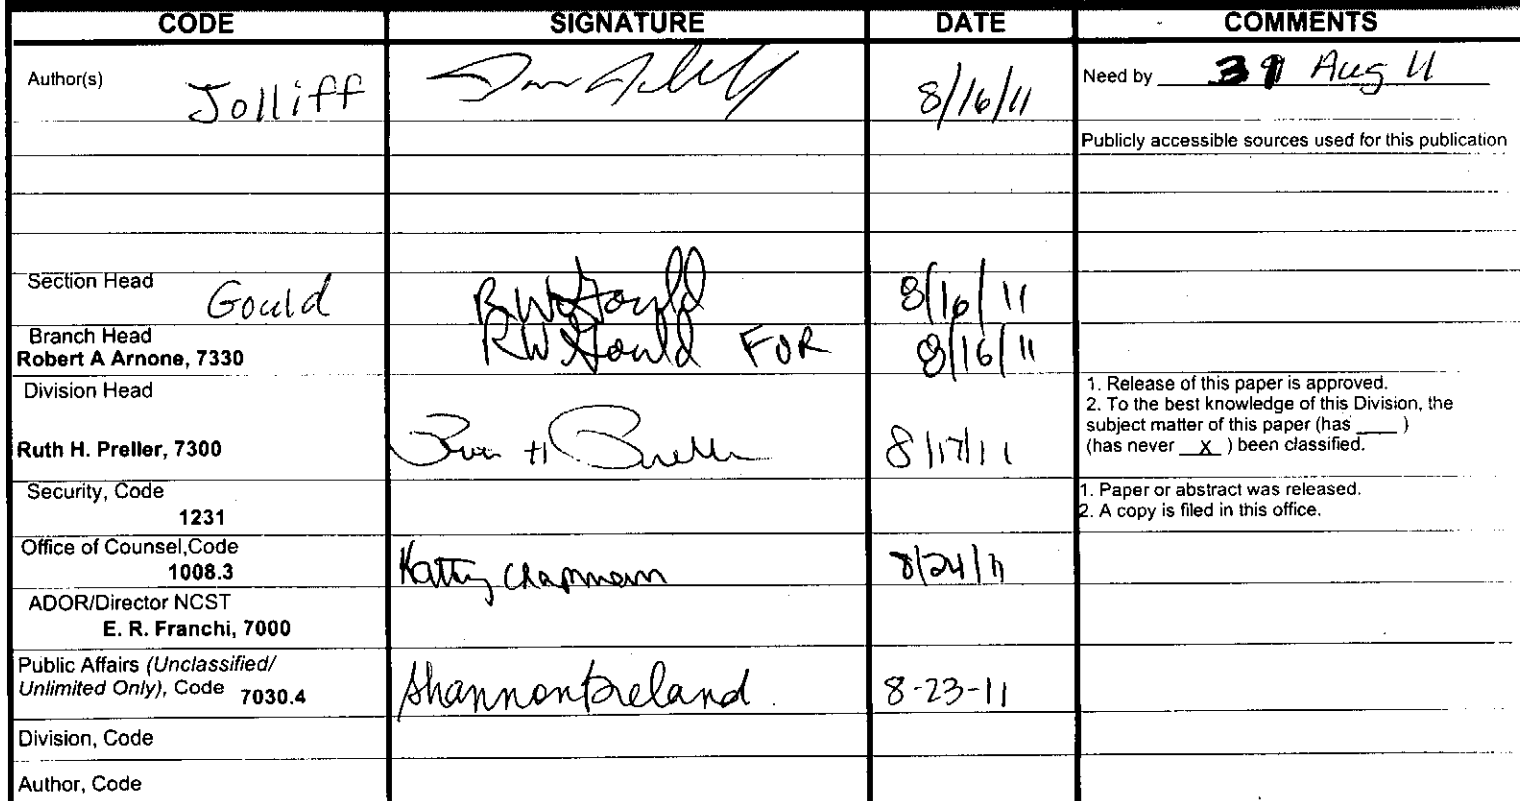 CODE SIGNATURE DATE COMMENTS
Author(s) Jolliff 8/16/11 Need by 31 Aug 11
Publicly accessible sources used for this publication
Section Head Gould RW Gould 8/16/11
Branch Head
Robert A Arnone, 7330 RW Gould FOR 8/16/11
Division Head
1. Release of this paper is approved.
2. To the best knowledge of this Division, the
subject matter of this paper (has ____ )
Ruth H. Preller, 7300 Ruth H Preller 8/17/11 (has never __X__ ) been classified.
Security, Code
1231
1. Paper or abstract was released.
2. A copy is filed in this office.
Office of Counsel,Code
1008.3 Kathy Chapman 8/24/11
ADOR/Director NCST
E. R. Franchi, 7000
Public Affairs (Unclassified/
Unlimited Only), Code 7030.4 Shannon Breland 8-23-11
Division, Code
Author, Code